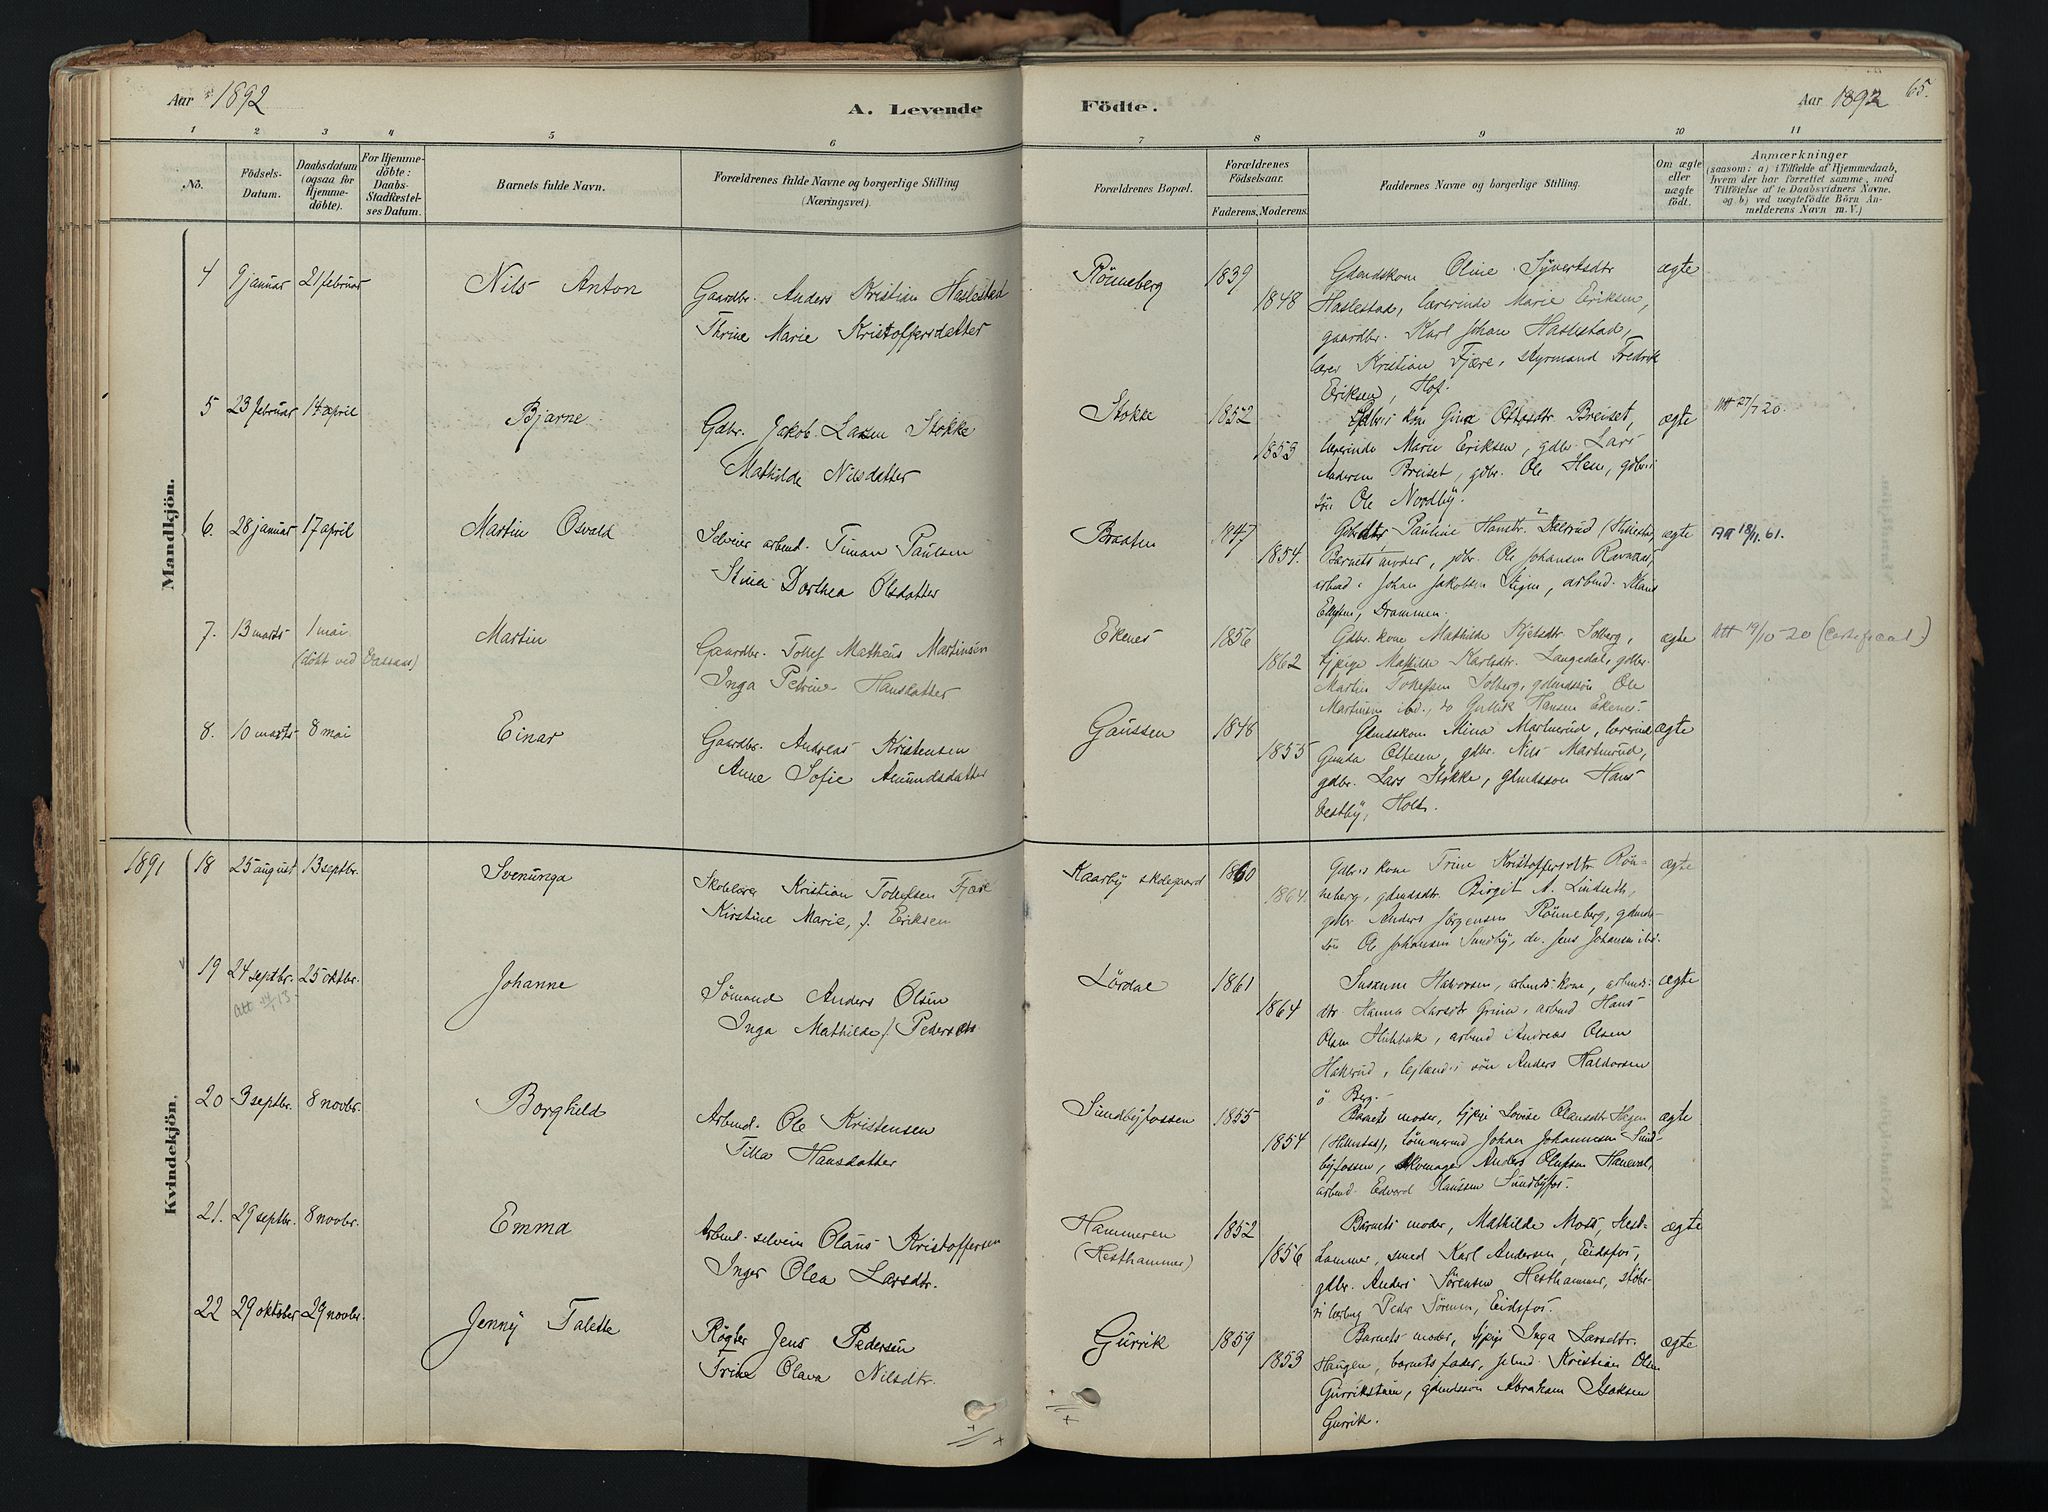 Aar 1892
A. Levende
Födte.
Aar 1892
65.
1 2 3 4 5 6 7 8 9 10 11
No.
Födsels-
Datum.
Daabsdatum
(ogsaa for
Hjemme-
döbte).
For Hjemme-
döbte:
Daabs-
Stadfæstel-
ses Datum.
Barnets fulde Navn.
Forældrenes fulde Navne og borgerlige Stilling
(Næringsvei).
Forældrenes Bopæl.
Forældrenes
Födselsaar.
Faderens. Moderens.
Faddernes Navne og borgerlige Stilling.
Om ægte
eller
uægte
födt.
Anmærkninger
(saasom: a) i Tilfælde af Hjemmedaab,
hvem der har forrettet samme, med
Tilföielse af te Daabsvidners Navne,
og b) ved uægtefödte Börn An-
melderens Navn m. V.)
Mandkjön.
4 9 januar 21 februar Nils Anton
Gaardbr. Anders Kristian Haslestad
Thrine Marie Kristoffersdatter
Rönneberg 1839
1848
Gdmdskone Oline Syvertsdtr
Haslestad, lærerinde Marie Eriksen,
gaardbr. Karl Johan Haslestad,
lærer Kristian Fjære, styrmand Fredrik
Eriksen, Hof.
ægte
5 23 februar 14 april Bjarne
Gdbr. Jakob Larsen Stokke
Mathilde Nilsdatter
Stokke 1852
1853
Gdbr.s kone Gina Breiset,
lærerinde Marie Eriksen, gdbr. Lars
Andersen Breiset, gdbr. Ole Hen, gdbr.s
sön Ole Nordby.
ægte
Att 27/7 20.
6. 28 januar 17 april Martin Osvald
Selveier arbeid. Timan Paulsen
Stina Dorthea Olsdatter
Braaten 1847
1854.
Gdbrdtr Pauline Hansdtr. Dalsrud (Hillestad)
Barnets moder, gdbr. Ole Johansen Ravnaas,
arbeid. Johan Jakobsen Stigen, arbeid.
Drammen.
ægte
18/11. 61.
7. 13 marts 1 mai Martin
(döbt ved Vassaas)
Gaardbr. Tollef Matheus Martinsen
Inga Petrine Hansdatter
Ekenes 1856
1862
Gdbr. kone Mathilde Solberg,
pige Mathilde Karlsdtr. Langedal, gdbr.
Martin Tollefsen Solberg, gdmdssön Ole
Martinsen ibd., do Gullik Hansen Ekenes.
ægte
Att 19/10-20 (Certificat)
8. 10 marts 8 mai Einar
Gaardbr. Andreas Kristensen
Anne Sofie Amundsdatter
Gaussen 1848
1855
Gdmdskone Mina Martinrud, lærerinde
Gunda Oltesen, gdbr. Nils Martinrud,
gdbr. Lars Stokke, gdmdssön Hans
Vestby, Holt.
ægte
Kvindekjön.
1891 18 25 august 13 septbr. Svenunga
Skolelærer Kristian Tollefsen Fjære
Kirstine Marie, f. Eriksen
Kaarby skolegaard 1860
1864.
Gdbr.s kone Trine Kristoffersdtr Rön-
neberg, gdmdsdtr. Birgit A. Linderth,
gdbr. Anders Jörgensen Rönneberg, gdmds-
sön Ole Johansen Sundby, do. Jens Johansen ibd.
ægte
19 24 septbr. 25 oktbr. Johanne
Sömand Anders Olsen
Inga Mathilde f Pedersen
Lördal 1861
1864
Susanne Halvorsen, arbeids kone, arbeids
dtr. Hanna Larsdtr Grina, arbeid Hans
Olsen, arbeid Andreas Olsen
Hakerud, leilænd.s sön Anders Haldorsen
ö Berg.
ægte
20 3 septbr. 8 novbr. Borghild
Arbeid. Ole Kristensen
Tilla Hansdatter
Sundbyfossen 1855
1854
Barnets moder, pige Lovise Olausdtr Hagen
(Hillestad), tömmermd Johan Johannesen Sund-
byfossen, Anders Olufsen Haneval,
arbeid. Edvard Olaussen Sundbyfos.
ægte
21. 29 septbr. 8 novbr. Emma
Arbeid. selveier Olaus Kristoffersen
Inger Olea Larsdtr.
Hammeren
(Hesthammer)
1852
1856
Barnets moder, Mathilde Moss, Hest-
hammer, smed Karl Andersen, Eidsfos,
gdbr. Anders Sörensen Hesthammer, stöbe-
rilærling Peder Sörensen, Eidsfos.
ægte
22 29 oktober 29 novbr. Jenny Talette
Rögter Jens Pedersen
Trine Olava Nilsdtr.
Gurrik 1859
1853
Barnets moder, pige Inga Larsdtr.
Haugen, barnets fader, Kristian Olsen
Gurrikstuen, gdmdssön Abraham Isaksen
Gurrik.
ægte